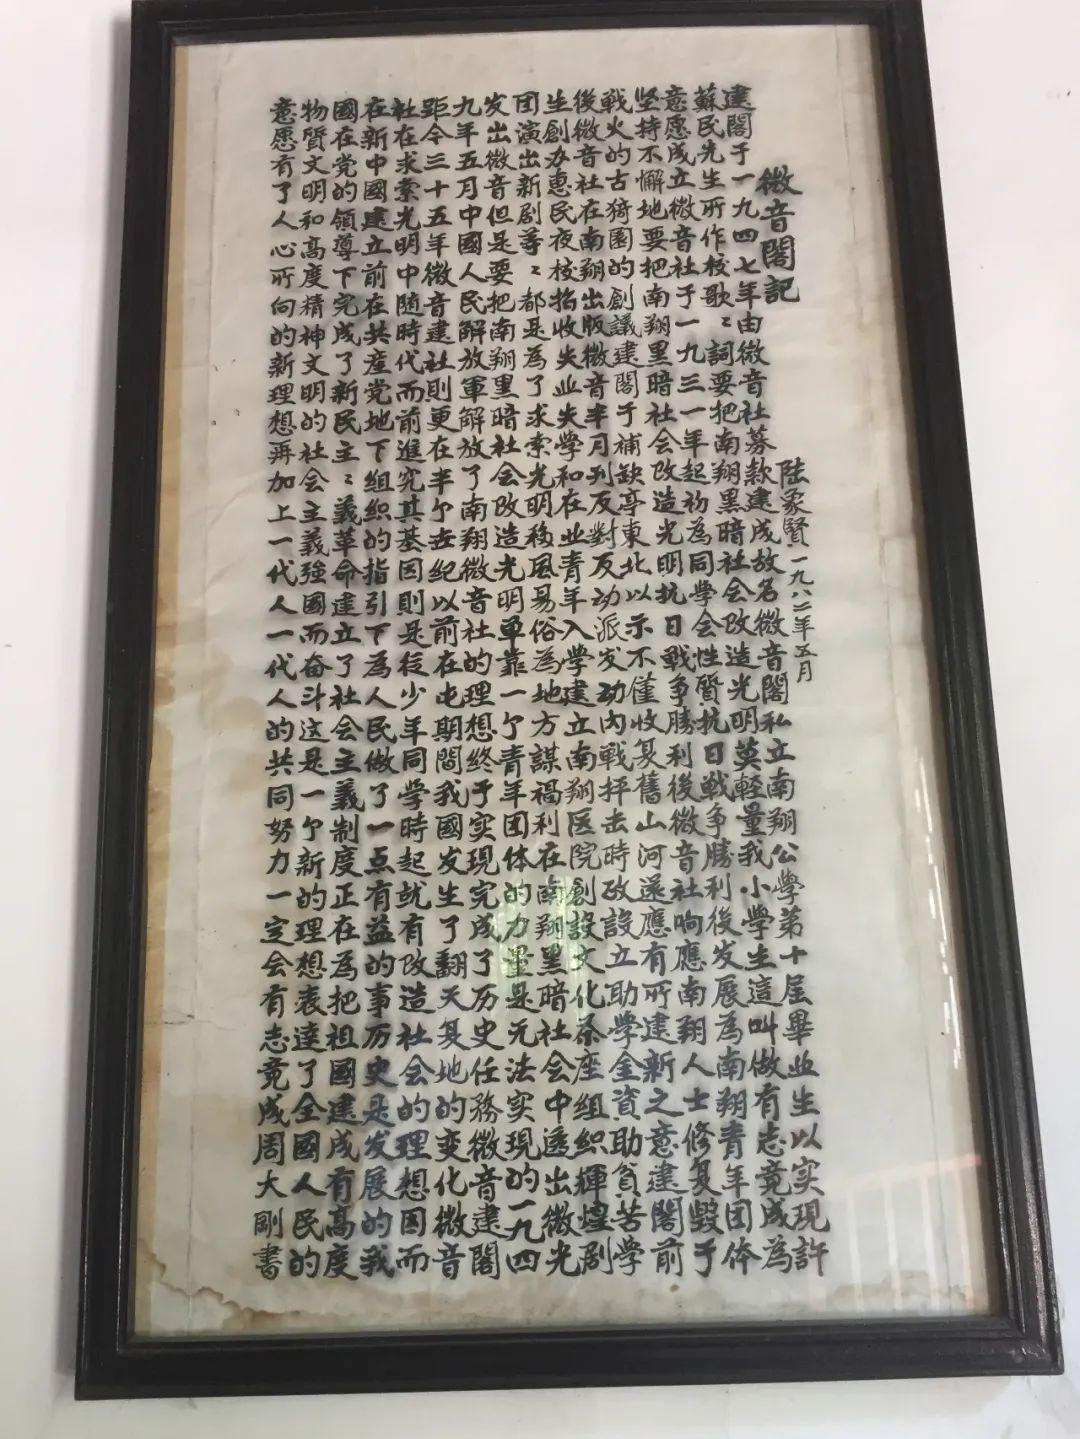 微音閣記
陆象賢一九八二年五月
建閣于一九四七年由微音社募款建成故名微音閣私立南翔公學第十屆畢业生以实現許
蘇民先生所作校歌：詞要把南翔黑暗社会改造光明莫軽量我小學生這叫做有志竟成為
意愿成立微音社于一九三一年起初為同學会性质抗日戰争勝利後发展為南翔青年团体
坚持不懈地要把南翔黑暗社会改造光明抗日戰争勝利後微音社响應南翔人士修复毀于
戰火的古猗園的創議建閣于補缺亭東北以示不僅收复舊山河还應有所建新之意建閣前
後微音社在南翔出版微音半月刊反對反动派发动内戰抨击時政設立助學金資助貧苦學
生創办惠民夜校招收失业失學和在业青年入學建立南翔医院創設文化茶座組織輝煌剧
团演出新剧等：都是為了求索光明移風易俗為地方謀福利在南翔黑暗社会中透出微光
发出微音但是要把南翔黑暗社会改造光明单靠一个青年团体的力量是无法实現的一九四
九年五月中國人民解放軍解放了南翔微音社的理想終于实現完成了历史任務微音建閣
距今三十五年微音建社則更在半个世纪以前在此期間我國发生了翻天复地的变化微音
社在求索光明中随時代而前進究其基因則是從少年同學時起就有改造社会的理想因而
在新中國建立前在共産党地下組織的指引下為人民做了一点有益的事历史是发展的我
國在党的領導下完成了新民主：義革命建立了社会主義制度正在為把祖國建成有高度
物質文明和高度精神文明的社会主義強國而奋斗這是一个新的理想表達了全國人民的
意愿有了人心所向的新理想再加上一代人一代人的共同努力一定会有志竟成周大剛書